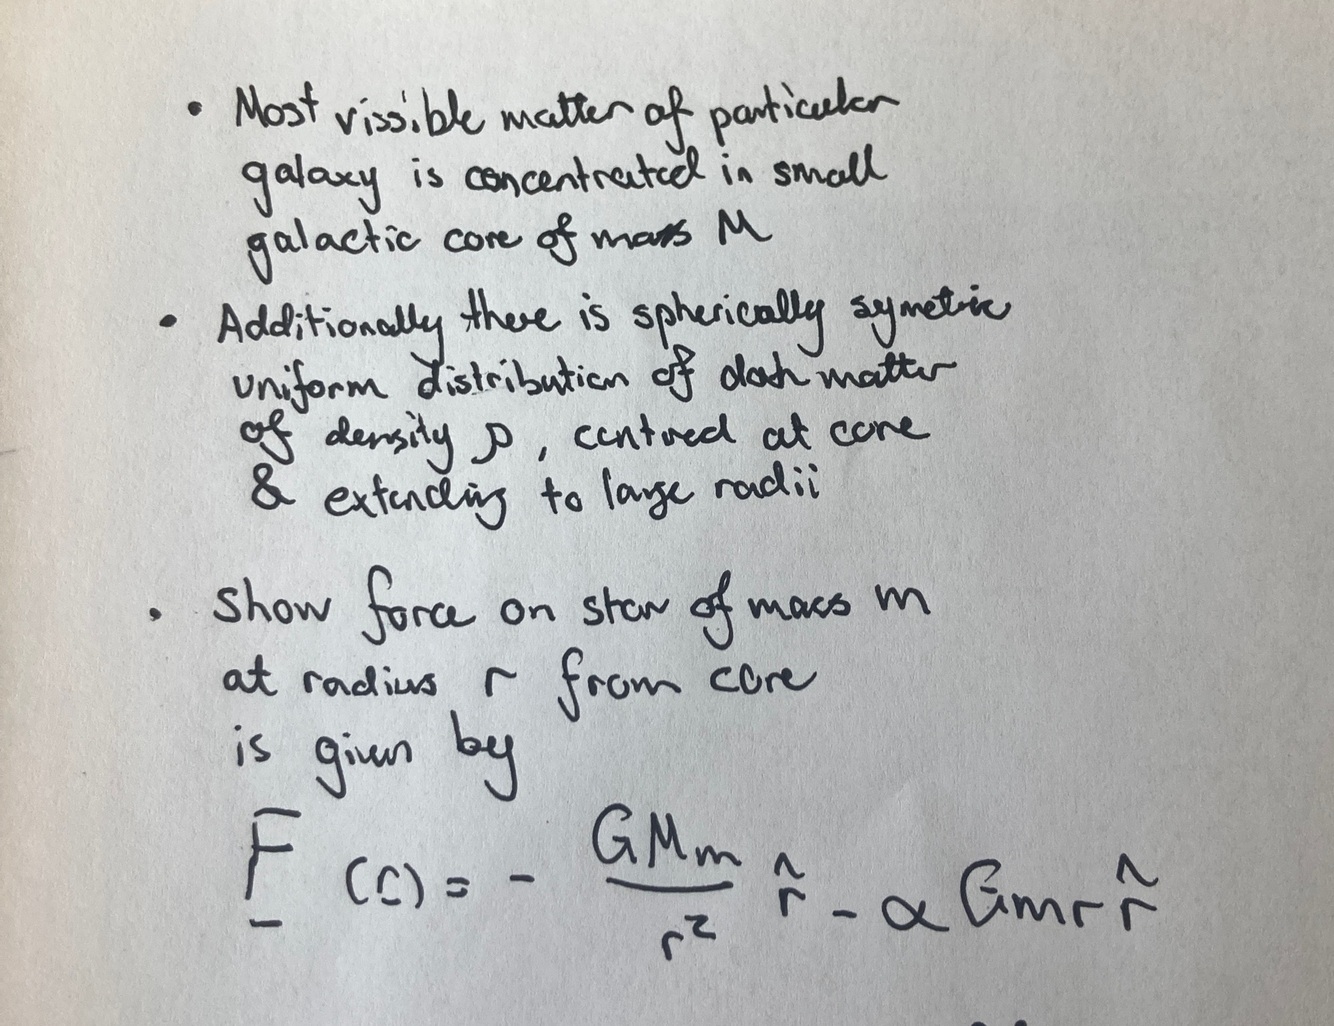 • Most vissible matter of particular
galaxy is concentrated in small
galactic core of mass M
• Additionally there is spherically symetric
uniform distribution of dark matter
of density ρ, centred at core
& extending to large radii
• Show force on star of mass m
at radius r from core
is given by
F̲ (r̲) = - GMm/r² r̂ - α Gmr r̂